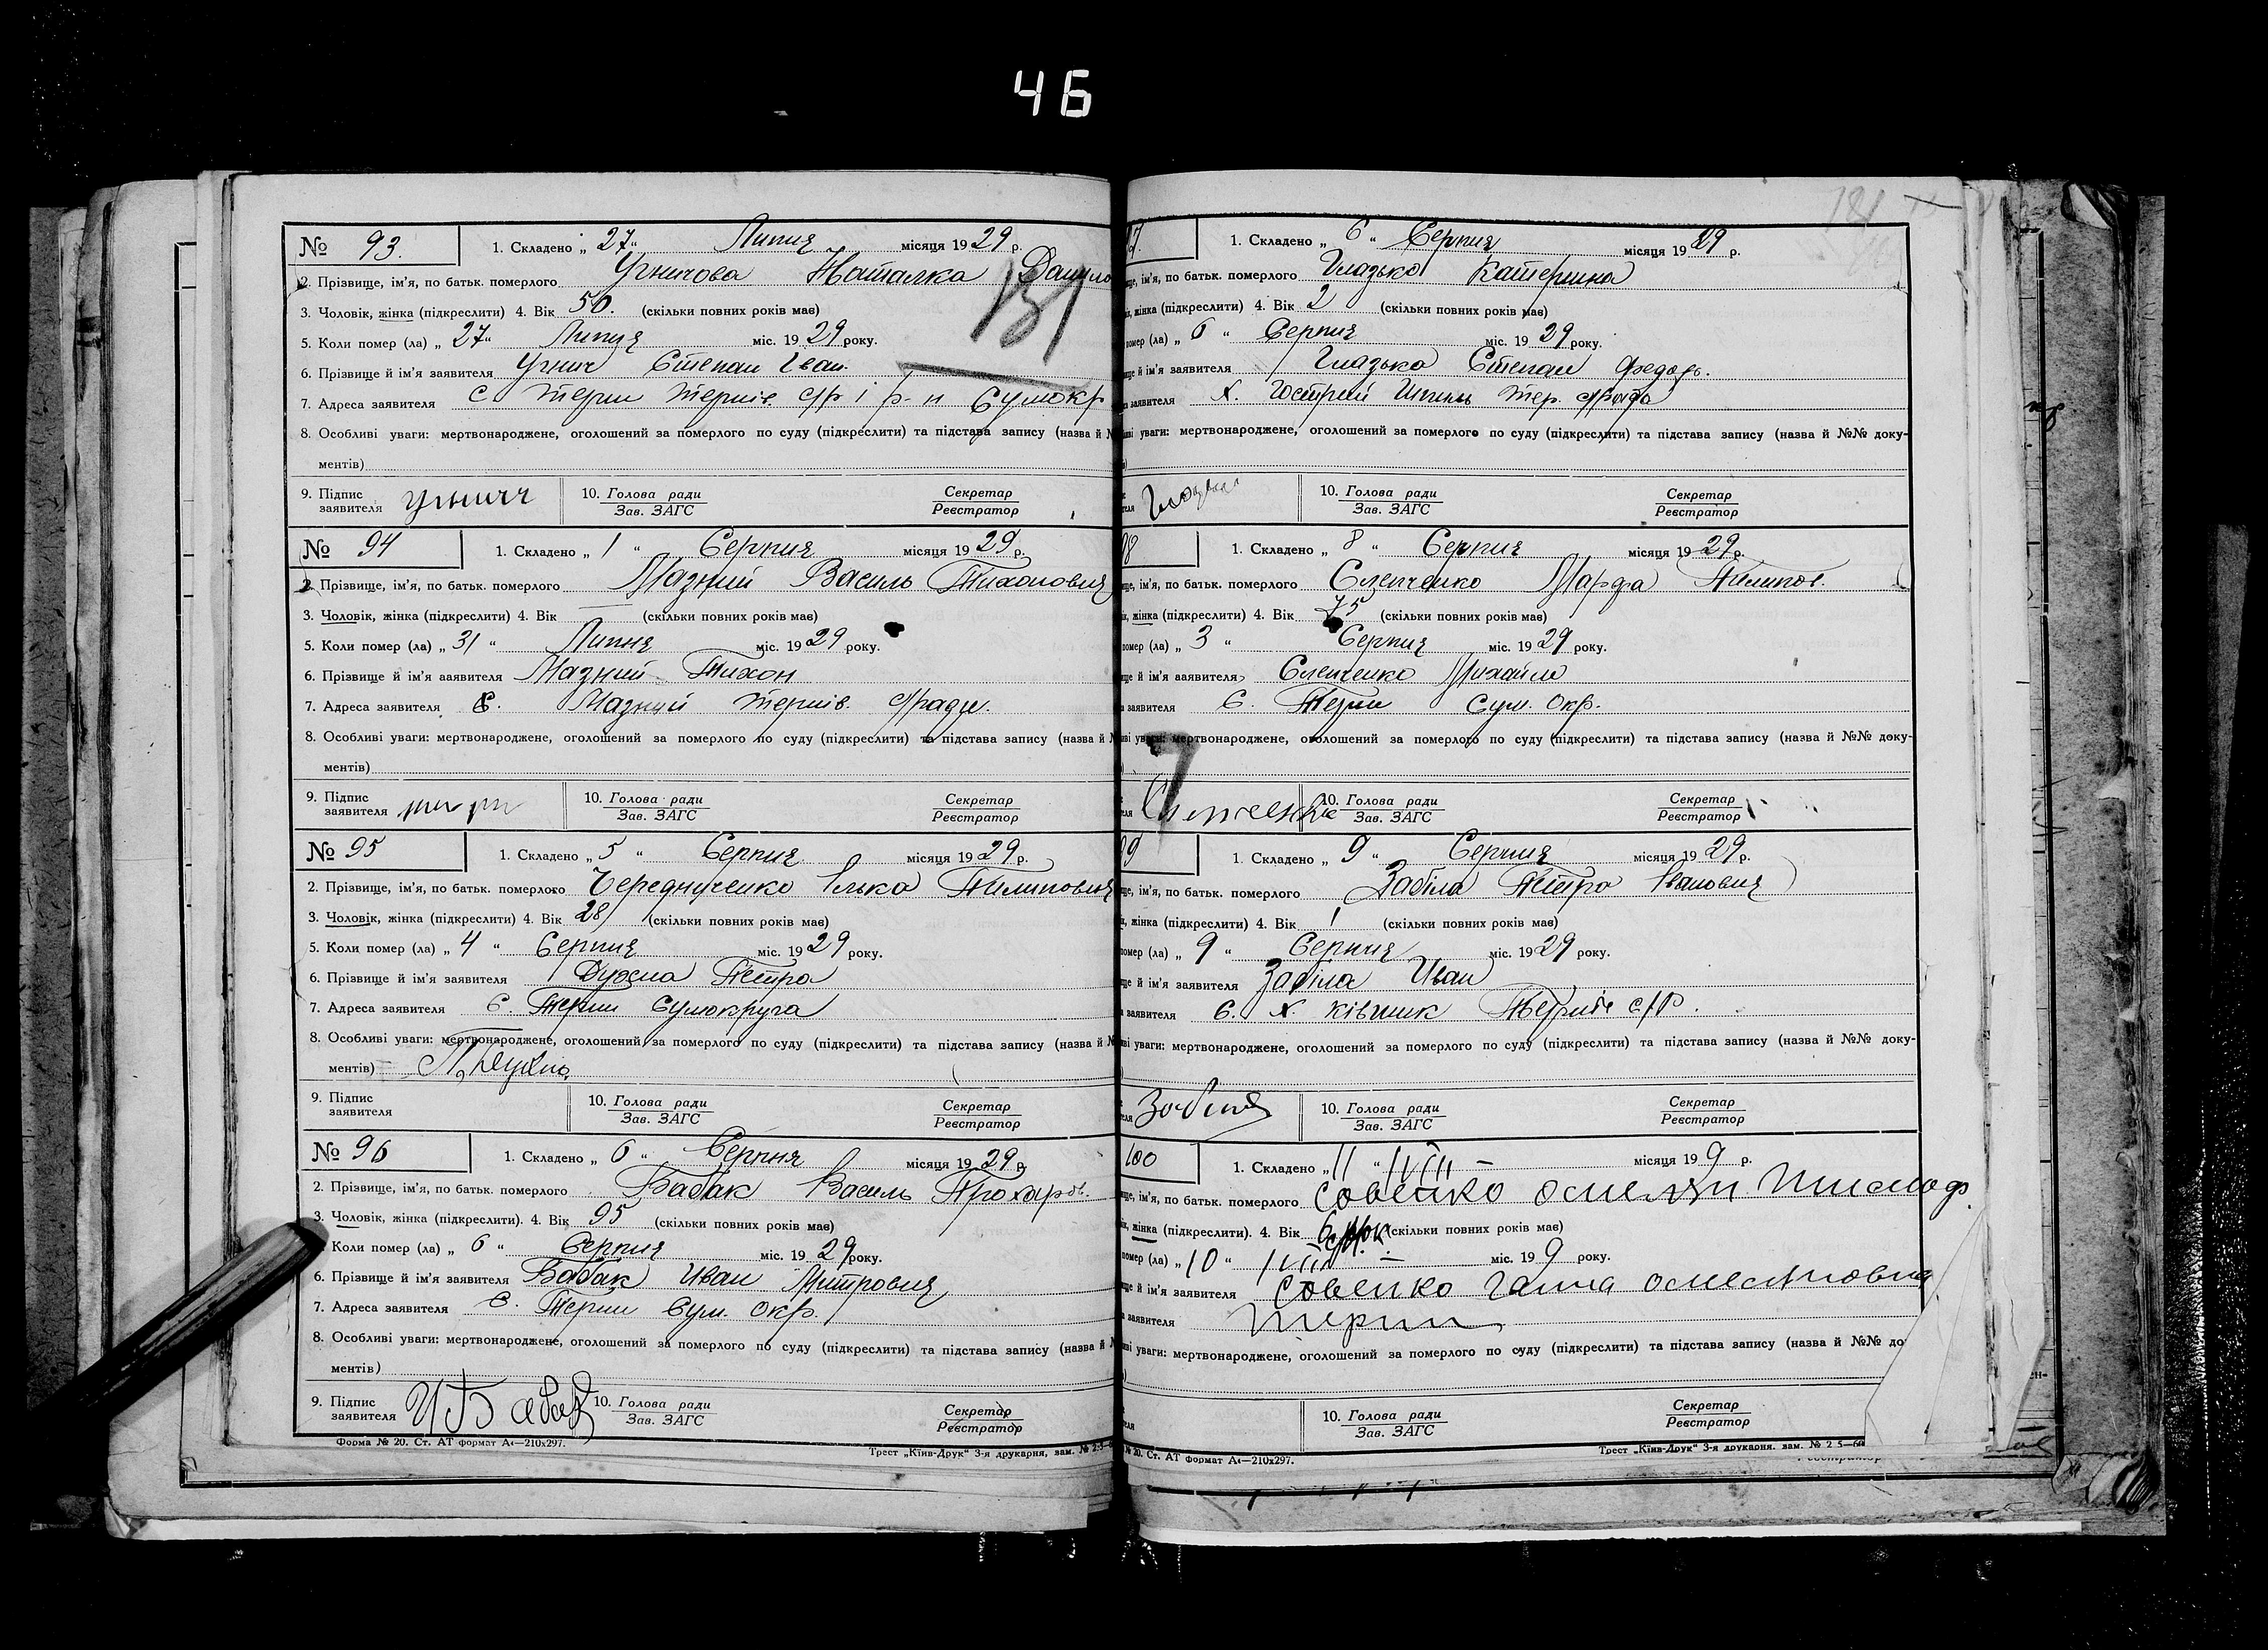 46
№ 93. 1. Складено „ 27 “ Липня місяця 1929 р.
2. Прізвище, ім’я, по батьк. померлого Угничова Наталка Данило
131
3. Чоловік, жінка (підкреслити) 4. Вік 50. (скільки повних років має)
5. Коли помер (ла) „ 27 “ Липня міс. 1929 року.
6. Прізвище й ім’я заявителя Угнич Степан Іван.
7. Адреса заявителя с. Терни Тернів. с/р і р-н Сумокр
8. Особливі уваги: мертвонароджене, оголошений за померлого по суду (підкреслити) та підстава запису (назва й №
ментів)
9. Підпис заявителя Угнич 10. Голова ради Зав. ЗАГС Секретар Реєстратор
№ 94 1. Складено „ 1 “ Серпня місяця 1929 р.
2. Прізвище, ім’я, по батьк. померлого Мазний Василь Тихонович
3. Чоловік, жінка (підкреслити) 4. Вік — (скільки повних років має)
5. Коли помер (ла) „ 31 “ Липня міс. 1929 року.
6. Прізвище й ім’я заявителя Мазний Тихон
7. Адреса заявителя с. Мазний Тернів. с/ради.
8. Особливі уваги: мертвонароджене, оголошений за померлого по суду (підкреслити) та підстава запису (назва й №
ментів)
9. Підпис заявителя 10. Голова ради Зав. ЗАГС Секретар Реєстратор
№ 95 1. Складено „ 5 “ Серпня місяця 1929 р.
2. Прізвище, ім’я, по батьк. померлого Чередниченко Ілька Пилипович
3. Чоловік, жінка (підкреслити) 4. Вік 28 (скільки повних років має)
5. Коли помер (ла) „ 4 “ Серпня міс. 1929 року.
6. Прізвище й ім’я заявителя Духна Петро
7. Адреса заявителя с. Терни Сумокруга
8. Особливі уваги: мертвонароджене, оголошений за померлого по суду (підкреслити) та підстава запису (назва й №
ментів)
9. Підпис заявителя 10. Голова ради Зав. ЗАГС Секретар Реєстратор
№ 96 1. Складено „ 6 “ Серпня місяця 1929 р.
2. Прізвище, ім’я, по батьк. померлого Бабак Василь Прохаров.
3. Чоловік, жінка (підкреслити). 4. Вік 95 (скільки повних років має)
Коли помер (ла) „ 6 “ Серпня міс. 1929 року.
6. Прізвище й ім’я заявителя Бабак Иван Митрович
7. Адреса заявителя с. Терни Сум. окр.
8. Особливі уваги: мертвонароджене, оголошений за померлого по суду (підкреслити) та підстава запису (назва й №
ментів)
9. Підпис заявителя И Бабак 10. Голова ради Зав. ЗАГС Секретар Реєстратор
Форма № 20. Ст. АТ формат А4—210х297. Трест „Київ-Друк“ 3-я друкарня, зам. №
181
7. 1. Складено „ 6 “ Серпня місяця 1929 р.
ім’я, по батьк. померлого Глазько Катерина
жінка (підкреслити) 4. Вік 2 (скільки повних років має)
помер (ла) „ 6 “ Серпня міс. 1929 року.
й ім’я заявителя Глазько Степан Федорь.
заявителя Х. Гострий Шпиль Тер. с/рада
уваги: мертвонароджене, оголошений за померлого по суду (підкреслити) та підстава запису (назва й №№ доку-
10. Голова ради Зав. ЗАГС Секретар Реєстратор
98 1. Складено „ 8 “ Серпня місяця 1929 р.
ім’я, по батьк. померлого Слепченко Марфа Пилипов.
жінка (підкреслити) 4. Вік 75 (скільки повних років має)
помер (ла) „ 3 “ Серпня міс. 1929 року.
й ім’я заявителя Слепченко Михайло
заявителя с. Терни Сум. Окр.
уваги: мертвонароджене, оголошений за померлого по суду (підкреслити) та підстава запису (назва й №№ доку-
10. Голова ради Зав. ЗАГС Секретар Реєстратор
99 1. Складено „ 9 “ Серпня місяця 1929 р.
ім’я, по батьк. померлого Забіла Петро Іванович
жінка (підкреслити) 4. Вік 1 (скільки повних років має)
помер (ла) „ 9 “ Серпня міс. 1929 року.
й ім’я заявителя Забіла Иван
заявителя с. х. Ківшик Тернів с/р.
уваги: мертвонароджене, оголошений за померлого по суду (підкреслити) та підстава запису (назва й №№ доку-
Забіла 10. Голова ради Зав. ЗАГС Секретар Реєстратор
100 1. Складено „ 11 “ VIII — місяця 199 р.
ім’я, по батьк. померлого Совенко
жінка (підкреслити). 4. Вік (скільки повних років має)
помер (ла) „ 10 “ VIII — міс. 199 року.
й ім’я заявителя Совенко Ганна Омеляновна
заявителя Терни
уваги: мертвонароджене, оголошений за померлого по суду (підкреслити) та підстава запису (назва й №№ до
10. Голова ради Зав. ЗАГС Секретар Реєстратор
№ 20. Ст. АТ формат А4—210х297. Трест „Київ-Друк“ 3-я друкарня, зам. №